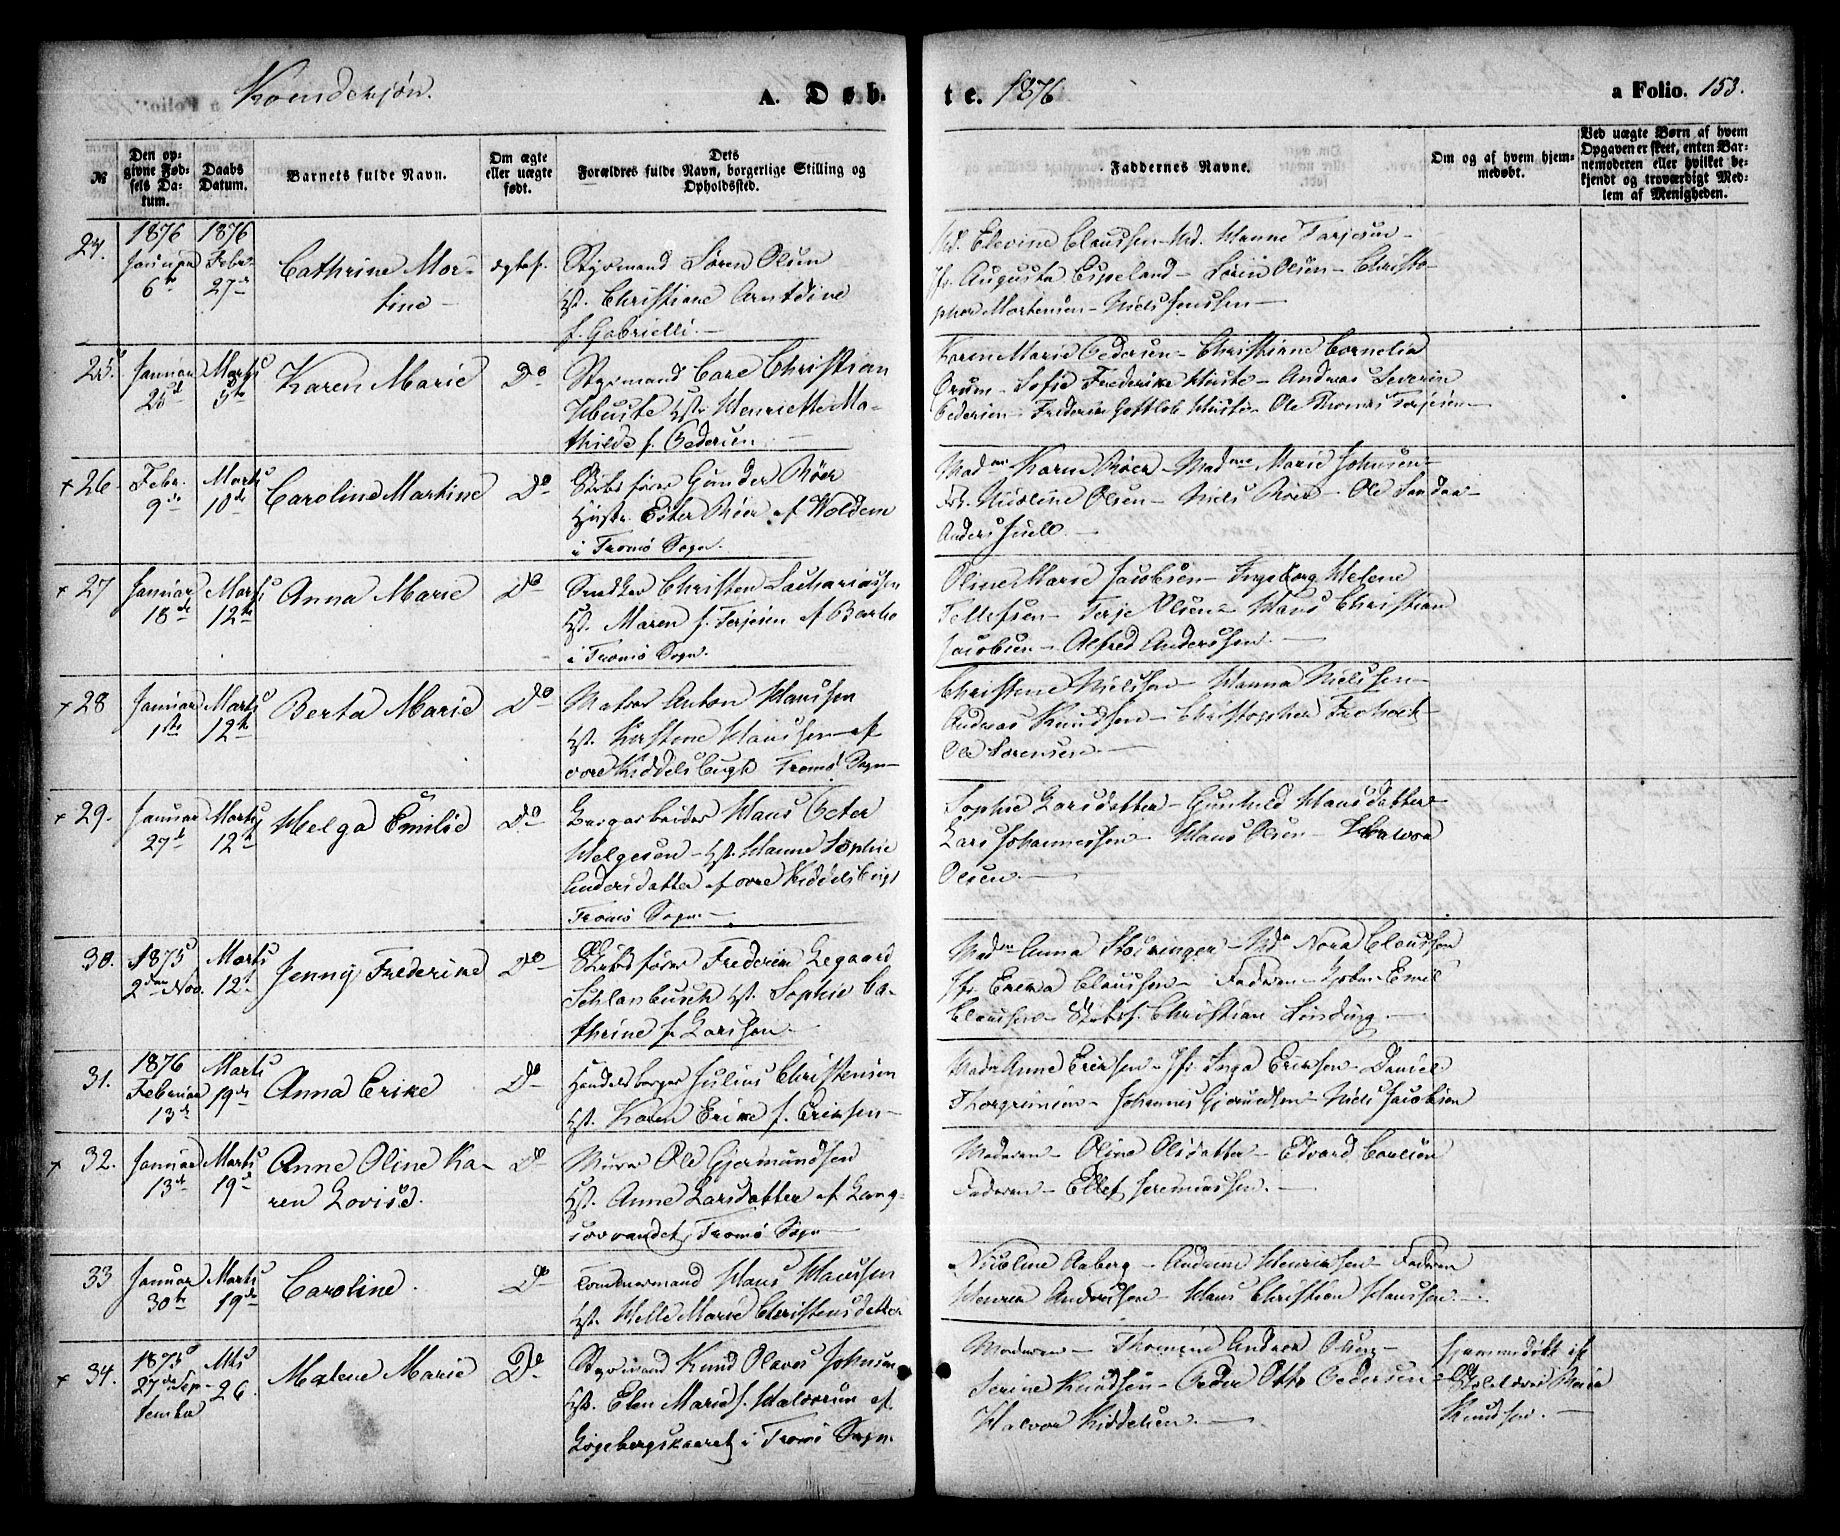 Kvindekjøn.
A. Døb-
te. 1876
a Folio. 153.
№
Den op-
givne Fød-
sels Da-
tum.
Daabs
Datum.
Barnets fulde Navn.
Om ægte
eller uægte
født.
Dets
Forældres fulde Navn, borgerlige Stilling og
Opholdssted.
Faddernes Navne.
Om og af hvem hjem-
medøbt.
Ved uægte Børn af hvem
Opgaven er skeet, enten Bar-
nemoderen eller hvilket be-
kjendt og troværdigt Med-
lem af Menigheden.
24.
1876
Januar
6te
1876
Febr.
27de
Cathrine Mor-
tine
ægtef.
Styrmand Søren Olsen
Hst. Christiane Arntdine
f. Gabrielli.
Md. Elevine Claussen Md. Hanne Tarjesen
Jfr. Augusta Espeland Søren Olsen Christo-
pher Mortensen Niels Jenssen
25.
Januar
25de
Marts
5te
Karen Marie
Do
Styrmand Care Christian
Huuste Hstr Henriette Ma-
thilde f. Pedersen
Karen Marie Pedersen Christiane Cornelia
Ørum Sofie Frederike Huste Andreas Severin
Pedersen Frederik Gottlob Huste Ole Thomas Torjesen
x 26.
Febr.
9de
Marts
10de
Caroline Martine
Do
Skibsfører Gunder Røer
Hustr. Ester Røer af Woldene
i Tromø Sogn.
Madme Karen Røer Madme Marie Johnsen
Frk. Nicoline Olsen Niels Røer Ole Sandaa
Anders Juell.
x 27
Januar
18de
Marts
12te
Anna Marie
Do
Snedker Christen Zachariassen
Hst. Maren f. Terjesen af Barbo
i Tromø Sogn.
Oline Marie Jacobsen Ingeborg Helene
Tellefsen Terje Olsen Hans Christian
Jacobsen Alfred Anderssen.
x 28
Januar
1ste
Marts
12te
Berta Marie
Do
Matros Anton Hanssen
Hst. Kirstene Hanssen af
øvre Kiddelsbugt Tromø Sogn
Christene Nielssen Hanna Nielssen
Andreas Knudsen Christopher Froholt
Ole Sørensen
x 29.
Januar
27de
Marts
12te
Helga Emilie
Do
Bergarbeider Hans Peter
Helgesen Hst. Hanne Sophie
Andersdatter af øvre Kiddelsbugt
Tromø Sogn
Sophie Larsdatter Gunhild Hansdatter
Lars Johannessen Hans Olsen Halvor
Olsen
30.
1875
2den Nov.
Marts
12te
Jenny Frederike
Do
Skibsfører Frederik Legaard
Schlanbusch Hst. Sophie Ca-
thrine f. Larssen
Madme Anna Md. Nora Claussen
Jfr. Emma Claussen Faderen Emil
Claussen Skibsf. Christian Linding.
31.
1876
Februar
13de
Marts
19de
Anna Erike
Do
Handelsborger Julius Christensen
Hst. Karen Erike f. Eriksen
Mad. Anne Eriksen Jfr. Inga Eriksen Daniel
Thorgrimsen Johannes Gjermundsen Niels Jacobsen
x 32.
Januar
13de
Marts
19de
Anne Oline Ka-
ren Lovise.
Do
Murer Ole Gjermundsen
Hst. Anne Larsdatter af Lang-
sævandet, Tromø Sogn
Moderen Oline Olsdatter Edvard Carlsen
Faderen Ellef Jeremiassen.
33
Januar
30te
Marts
19de
Caroline.
Do
Tømmermand Hans Hanssen
Hst. Helle Marie Christensdatter
Nicoline Aaberg Andrine Henriksen Faderen
Henrik Andreassen Hans Christian Hanssen.
x 34.
1875
27de Sep-
tember
Mts
26.
Malene Marie
Do
Styrmand Knud Olaves Johnsen
Hst. Elen Marie f. Halvorsen af
Løgebergskaaret i Tromø Sogn.
Moderen Thomine Andrea Olsen
Serine Knudsen Peder Otto Pedersen
Halvor Kiddelsen.
hjemmedøbt af
Marie
Knudsen.